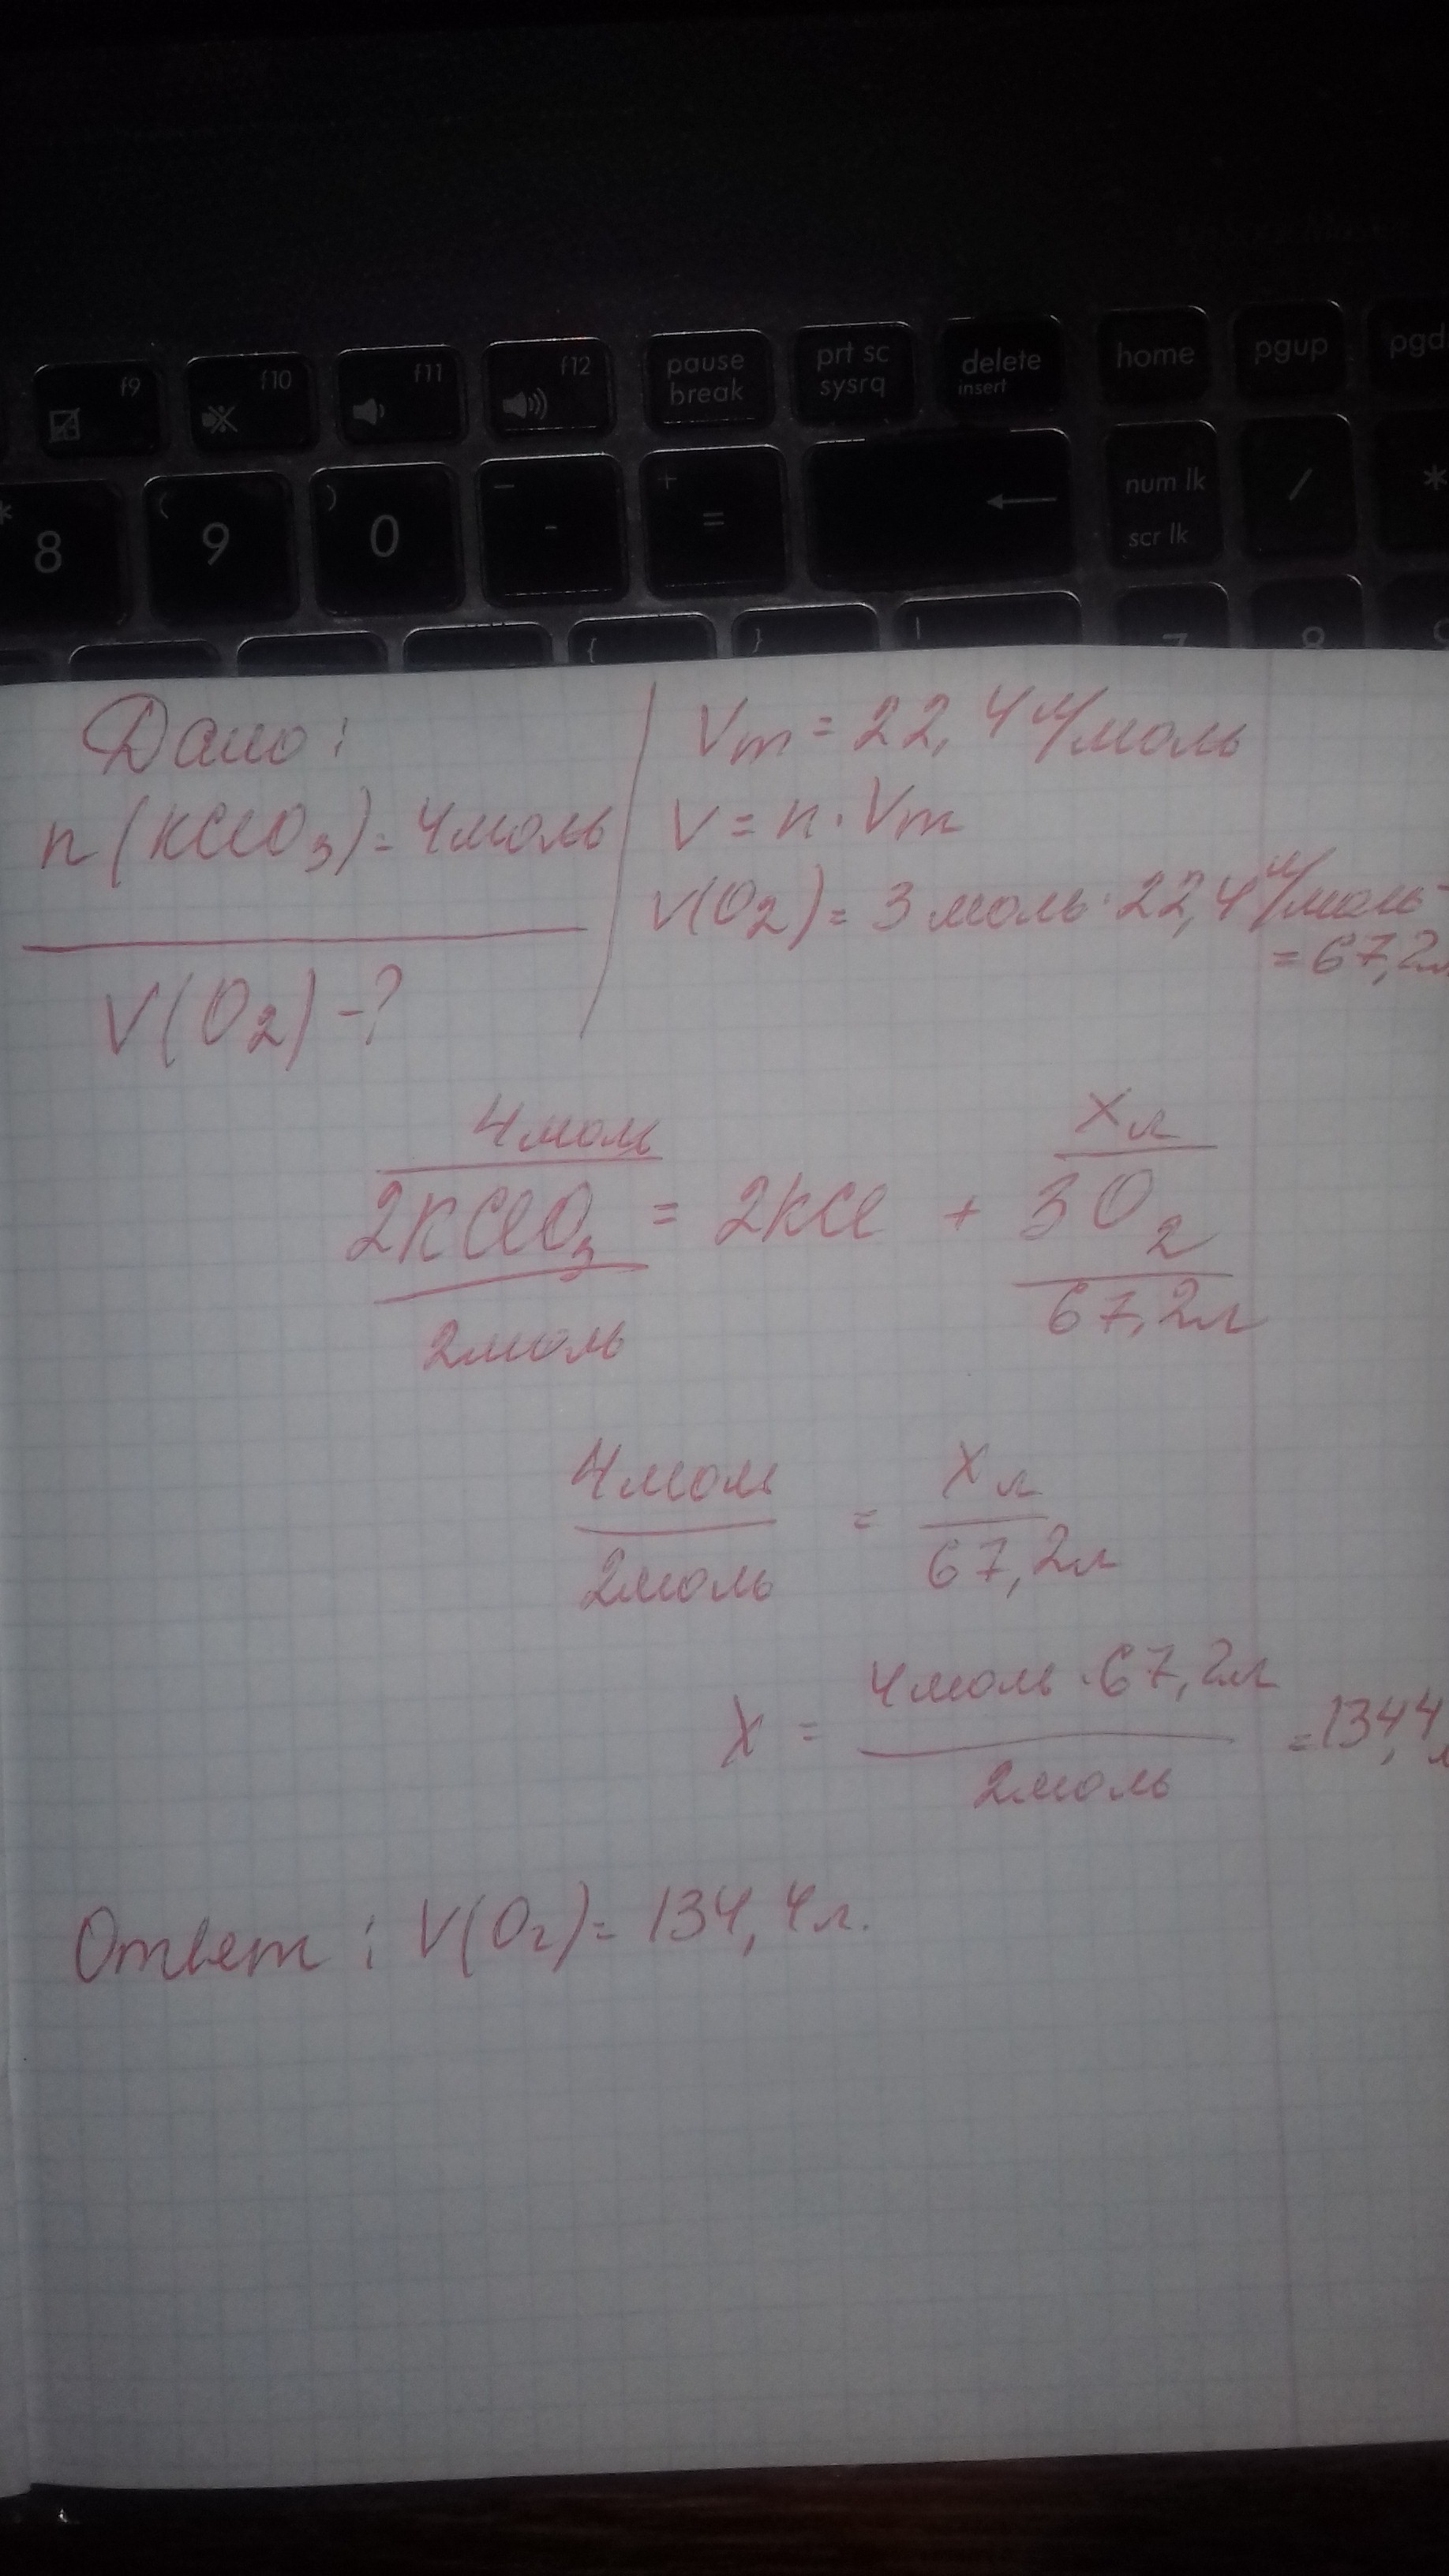 f9 f10 f11 f12 pause break prt sc sysrq delete insert home pgup pgd
* 8 ( 9 ) 0 _ - + = ← num lk scr lk / *
{ } | 7 8
Дано:
n(KClO3)=4моль
V(O2)-?
Vm=22,4л/моль
V=n·Vm
V(O2)=3моль·22,4л/моль=
=67,2л
4моль xл
2KClO3 = 2KCl + 3O2
2моль 67,2л
4моль = xл
2моль 67,2л
4моль·67,2л
X = =134,4л
2моль
Ответ: V(O2)=134,4л.